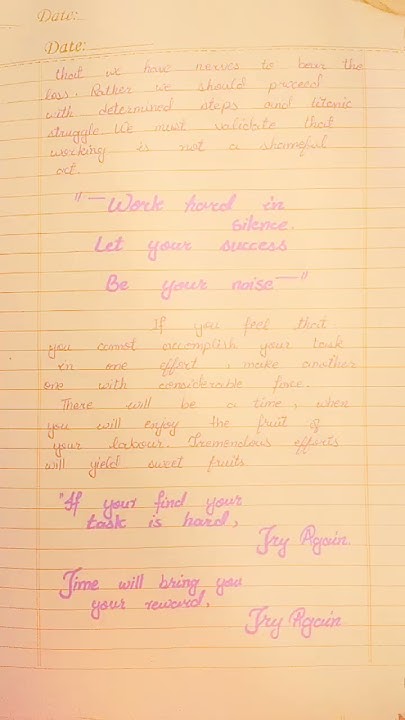 Date:
Date:
that we have nerves to bear the
loss. Rather we should proceed
with determined steps and titanic
struggle. We must validate that
working is not a shameful
act.
"—Work hard in
silence.
Let your success
Be your noise—"
If you feel that
you cannot accomplish your task
in one effort, make another
one with considerable force.
There will be a time, when
you will enjoy the fruit of
your labour. Tremendous efforts
will yield sweet fruits.
"If your find your
task is hard,
Try Again.
Time will bring you
your reward,
Try Again